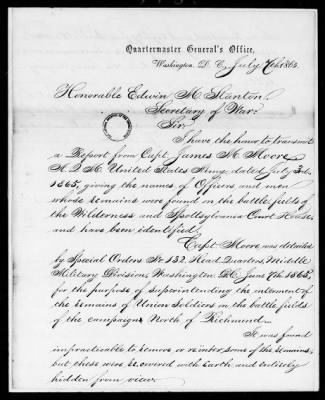 Quartermaster General's Office,
Washington, D. C., July 7th 1865.
Honorable Edwin M. Stanton.
Secretary of War.
Sir
I have the honor to transmit
a Report from Capt. James M. Moore
A. Q. M. United States Army, dated July 3d.
1865, giving the names of Officers and men
whose remains were found on the battle fields
of the Wilderness and Spottsylvania Court House,
and have been identified.
Capt. Moore, was detailed
by Special Orders No 132 Head Quarters, Middle
Military Division, Washington D.C. June 7th 1865,
for the purpose of superintending the interment of
the remains of Union Soldiers on the battle fields
of the campaigns North of Richmond.
It was found
impracticable to remove or reinter, some of the remains,
but these were recovered with earth and entirely
hidden from view